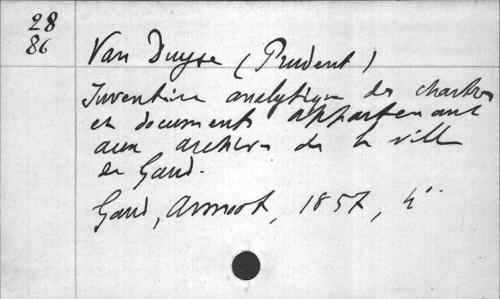 28
86
Van Duyse (Prudent)
Inventaire analytique des chartes
et documents appartenant
aux archives de la ville
de Gand.
Gand, Annoot, 1857, 4°.